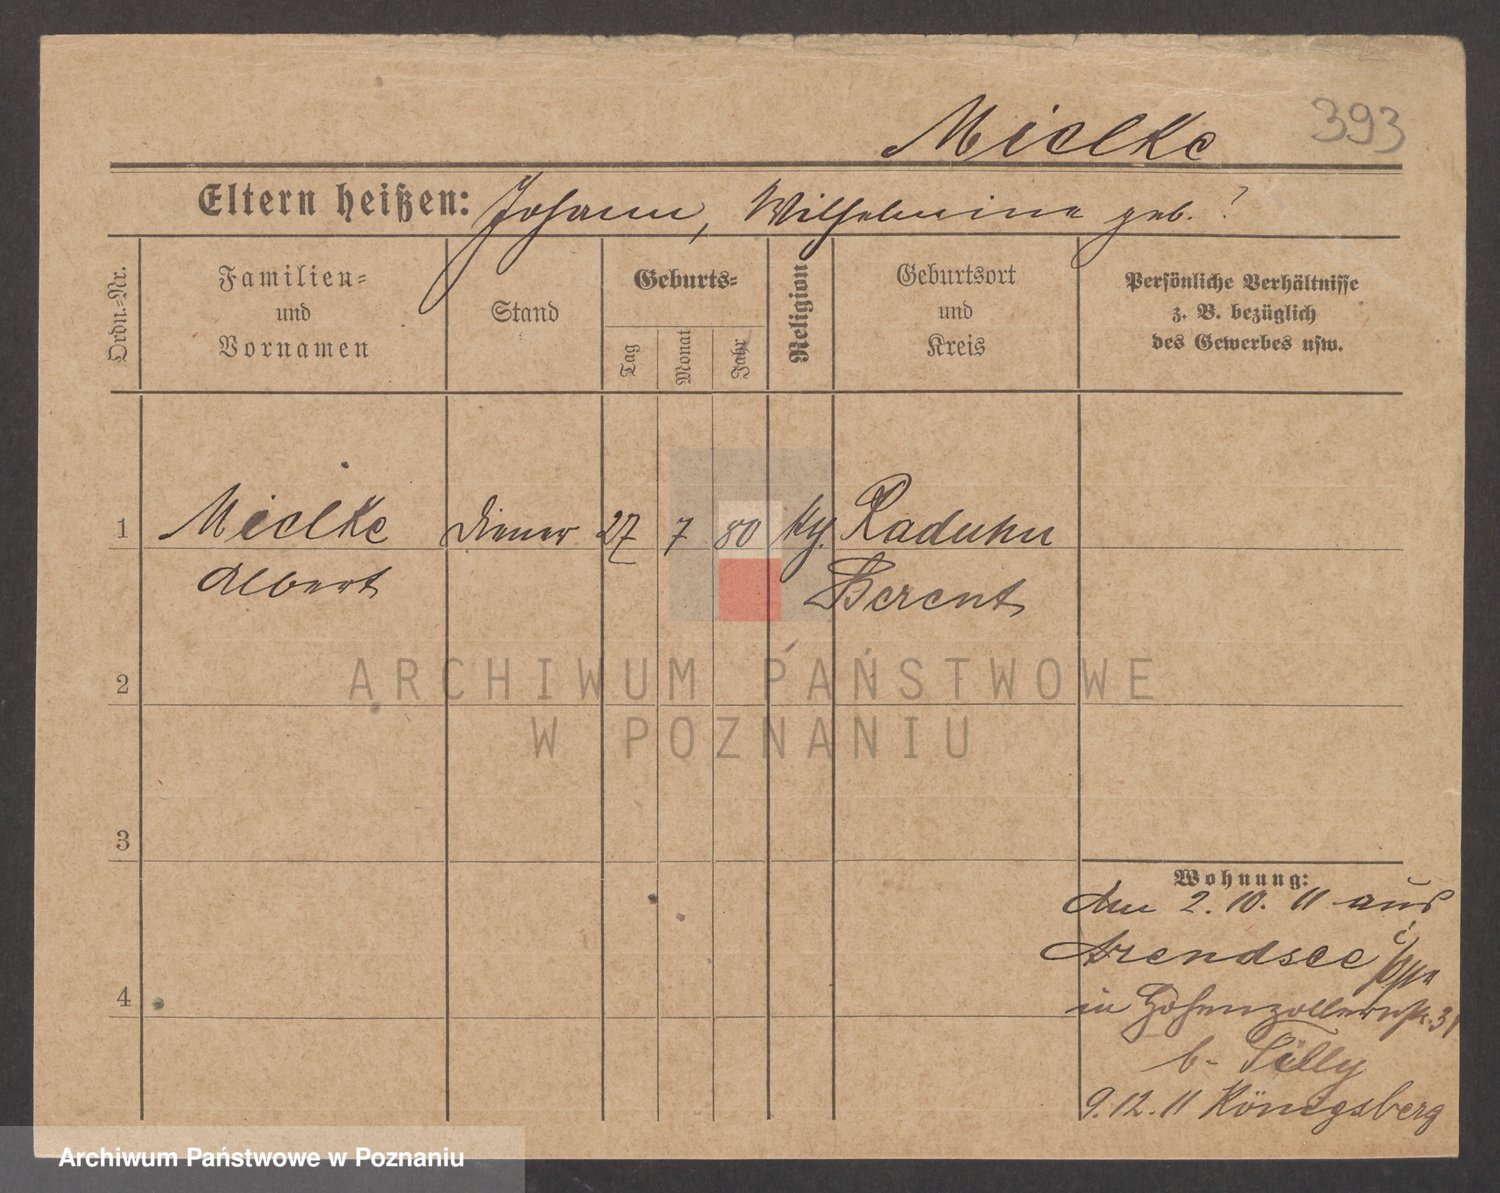 Mielke
393
Eltern heißen: Johann, Wilhelmine geb. ?
Ordn.-Nr.
Familien-
und
Vornamen
Stand
Geburts-
Tag
Monat
Jahr
Religion
Geburtsort
und
Kreis
Persönliche Verhältnisse
z. B. bezüglich
des Gewerbes usw.
1 Mielke Diener 27 7 80 Raduhn
Albert Berent
2
3
4
Wohnung:
den 2. 10. 11 aus
Arendsee
in Hohenzollernstr. 31
b- Tilly
9. 12. 11 Königsberg
ARCHIWUM PAŃSTWOWE
W POZNANIU
Archiwum Państwowe w Poznaniu